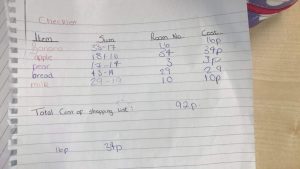 Checklist
Item Sum Room No. Cost
Banana 33-17 16 16p
apple 18+16 34 34p
pear 17-14 3 3p
bread 29 29
milk 10 10p
Total Cost of shopping list: 92p
16p 34p